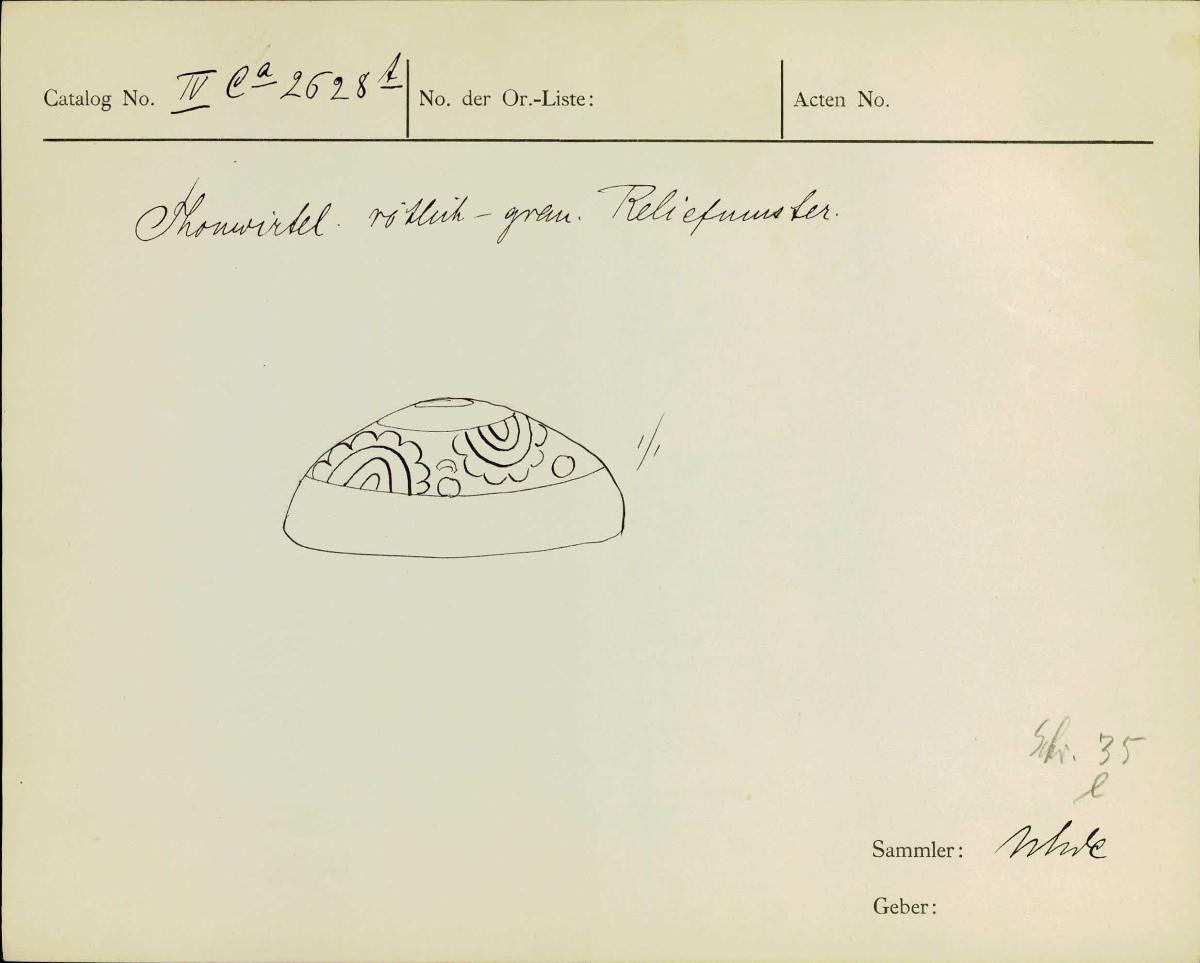 Catalog No. IV Ca 2628 t No. der Or.-Liste: Acten No.
Thonwirtel. rötlich - grau. Reliefmuster.
1/1
Schr. 35
l
Sammler: Uhde
Geber: